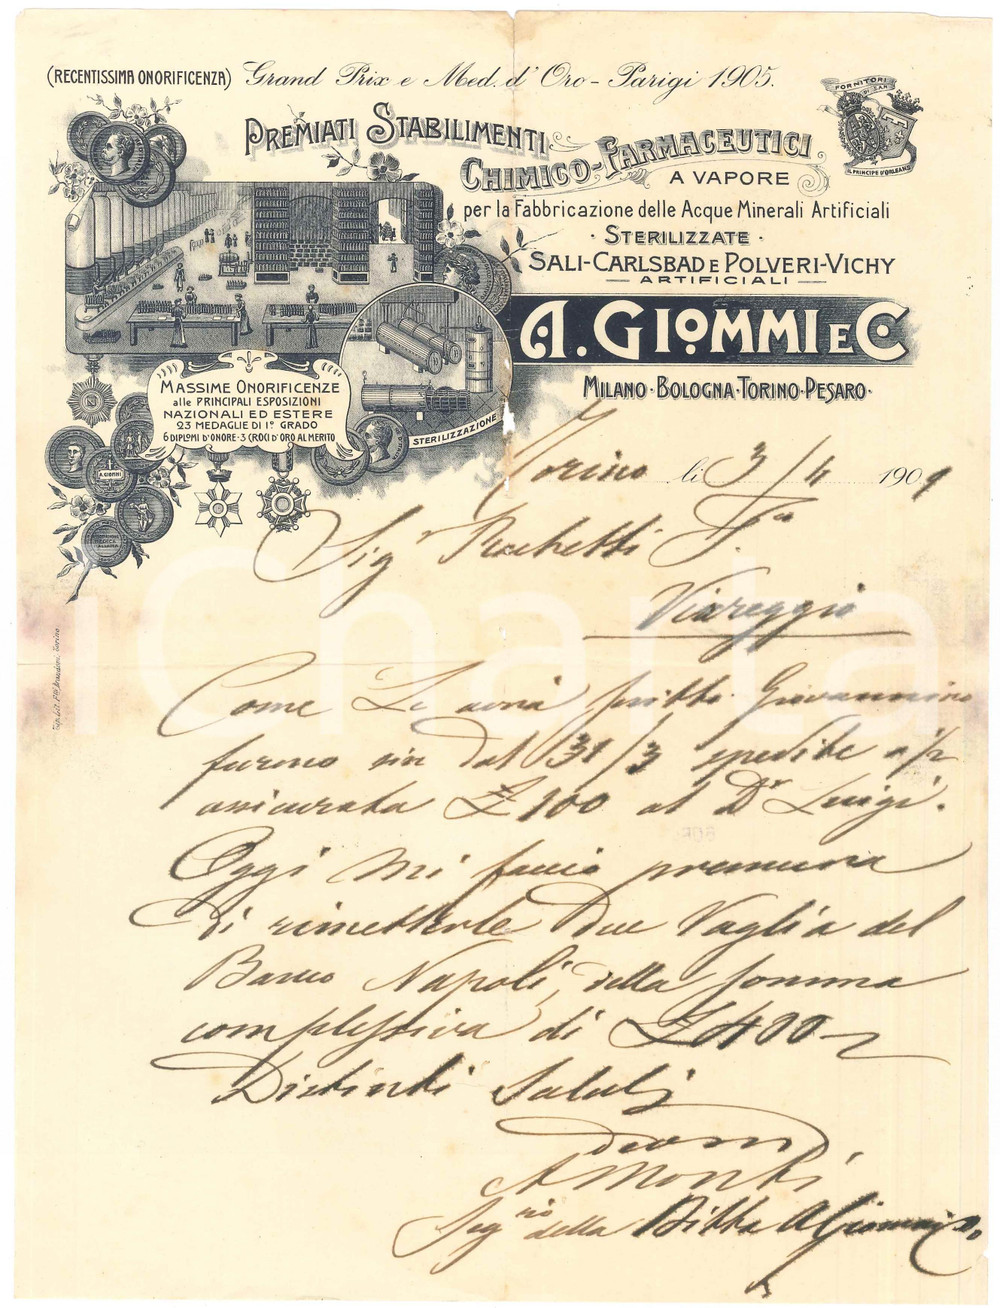 (RECENTISSIMA ONORIFICENZA) Grand Prix e Med. d'Oro - Parigi 1905.
FORNITORI
DI S.A.R.
IL PRINCIPE D'ORLEANS
PREMIATI STABILIMENTI
CHIMICO-FARMACEUTICI
A VAPORE
per la Fabbricazione delle Acque Minerali Artificiali
· STERILIZZATE ·
SALI-CARLSBAD E POLVERI-VICHY
ARTIFICIALI
A. GIOMMI E C
MILANO · BOLOGNA · TORINO · PESARO ·
MASSIME ONORIFICENZE
alle PRINCIPALI ESPOSIZIONI
NAZIONALI ED ESTERE
23 MEDAGLIE DI 1° GRADO
6 DIPLOMI D'ONORE · 3 CROCI D'ORO AL MERITO
STERILIZZAZIONE
A. GIOMMI
Torino li 3/4 1909
Sigr Rochetti F.co
Viareggio
Come Le avrà scritto Giovannino
furono sin dal 31/3 spedite a 1/2
assicurata £ 100 al Dr Luigi.
Oggi mi faccio premura
di rimetterle due Vaglia del
Banco Napoli, della somma
complessiva di £ 400
Distinti Saluti
A Monti
Segrio della Ditta A Giommi & Co
iCharta